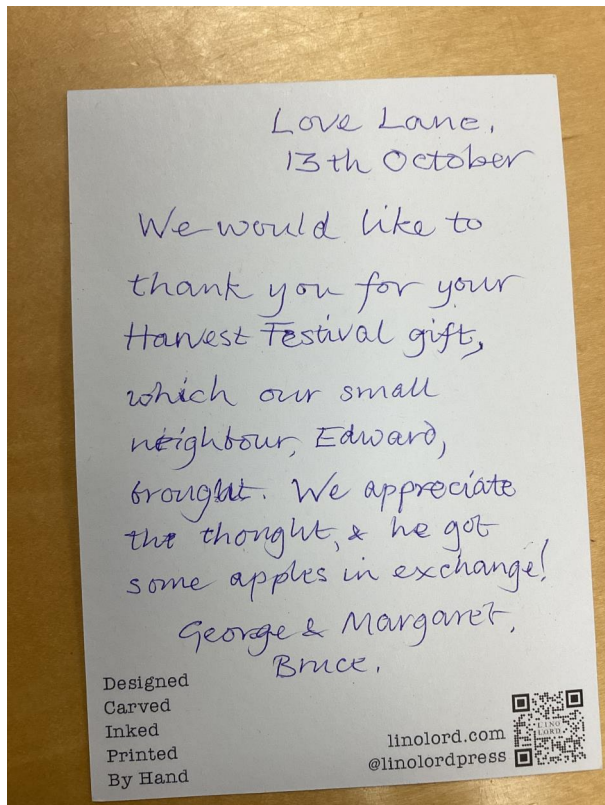 Love Lane,
13th October
We would like to
thank you for your
Harvest Festival gift,
which our small
neighbour, Edward,
brought. We appreciate
the thought, & he got
some apples in exchange!
George & Margaret,
Bruce.
Designed
Carved
Inked
Printed
By Hand
linolord.com
@linolordpress
LINO
LORD